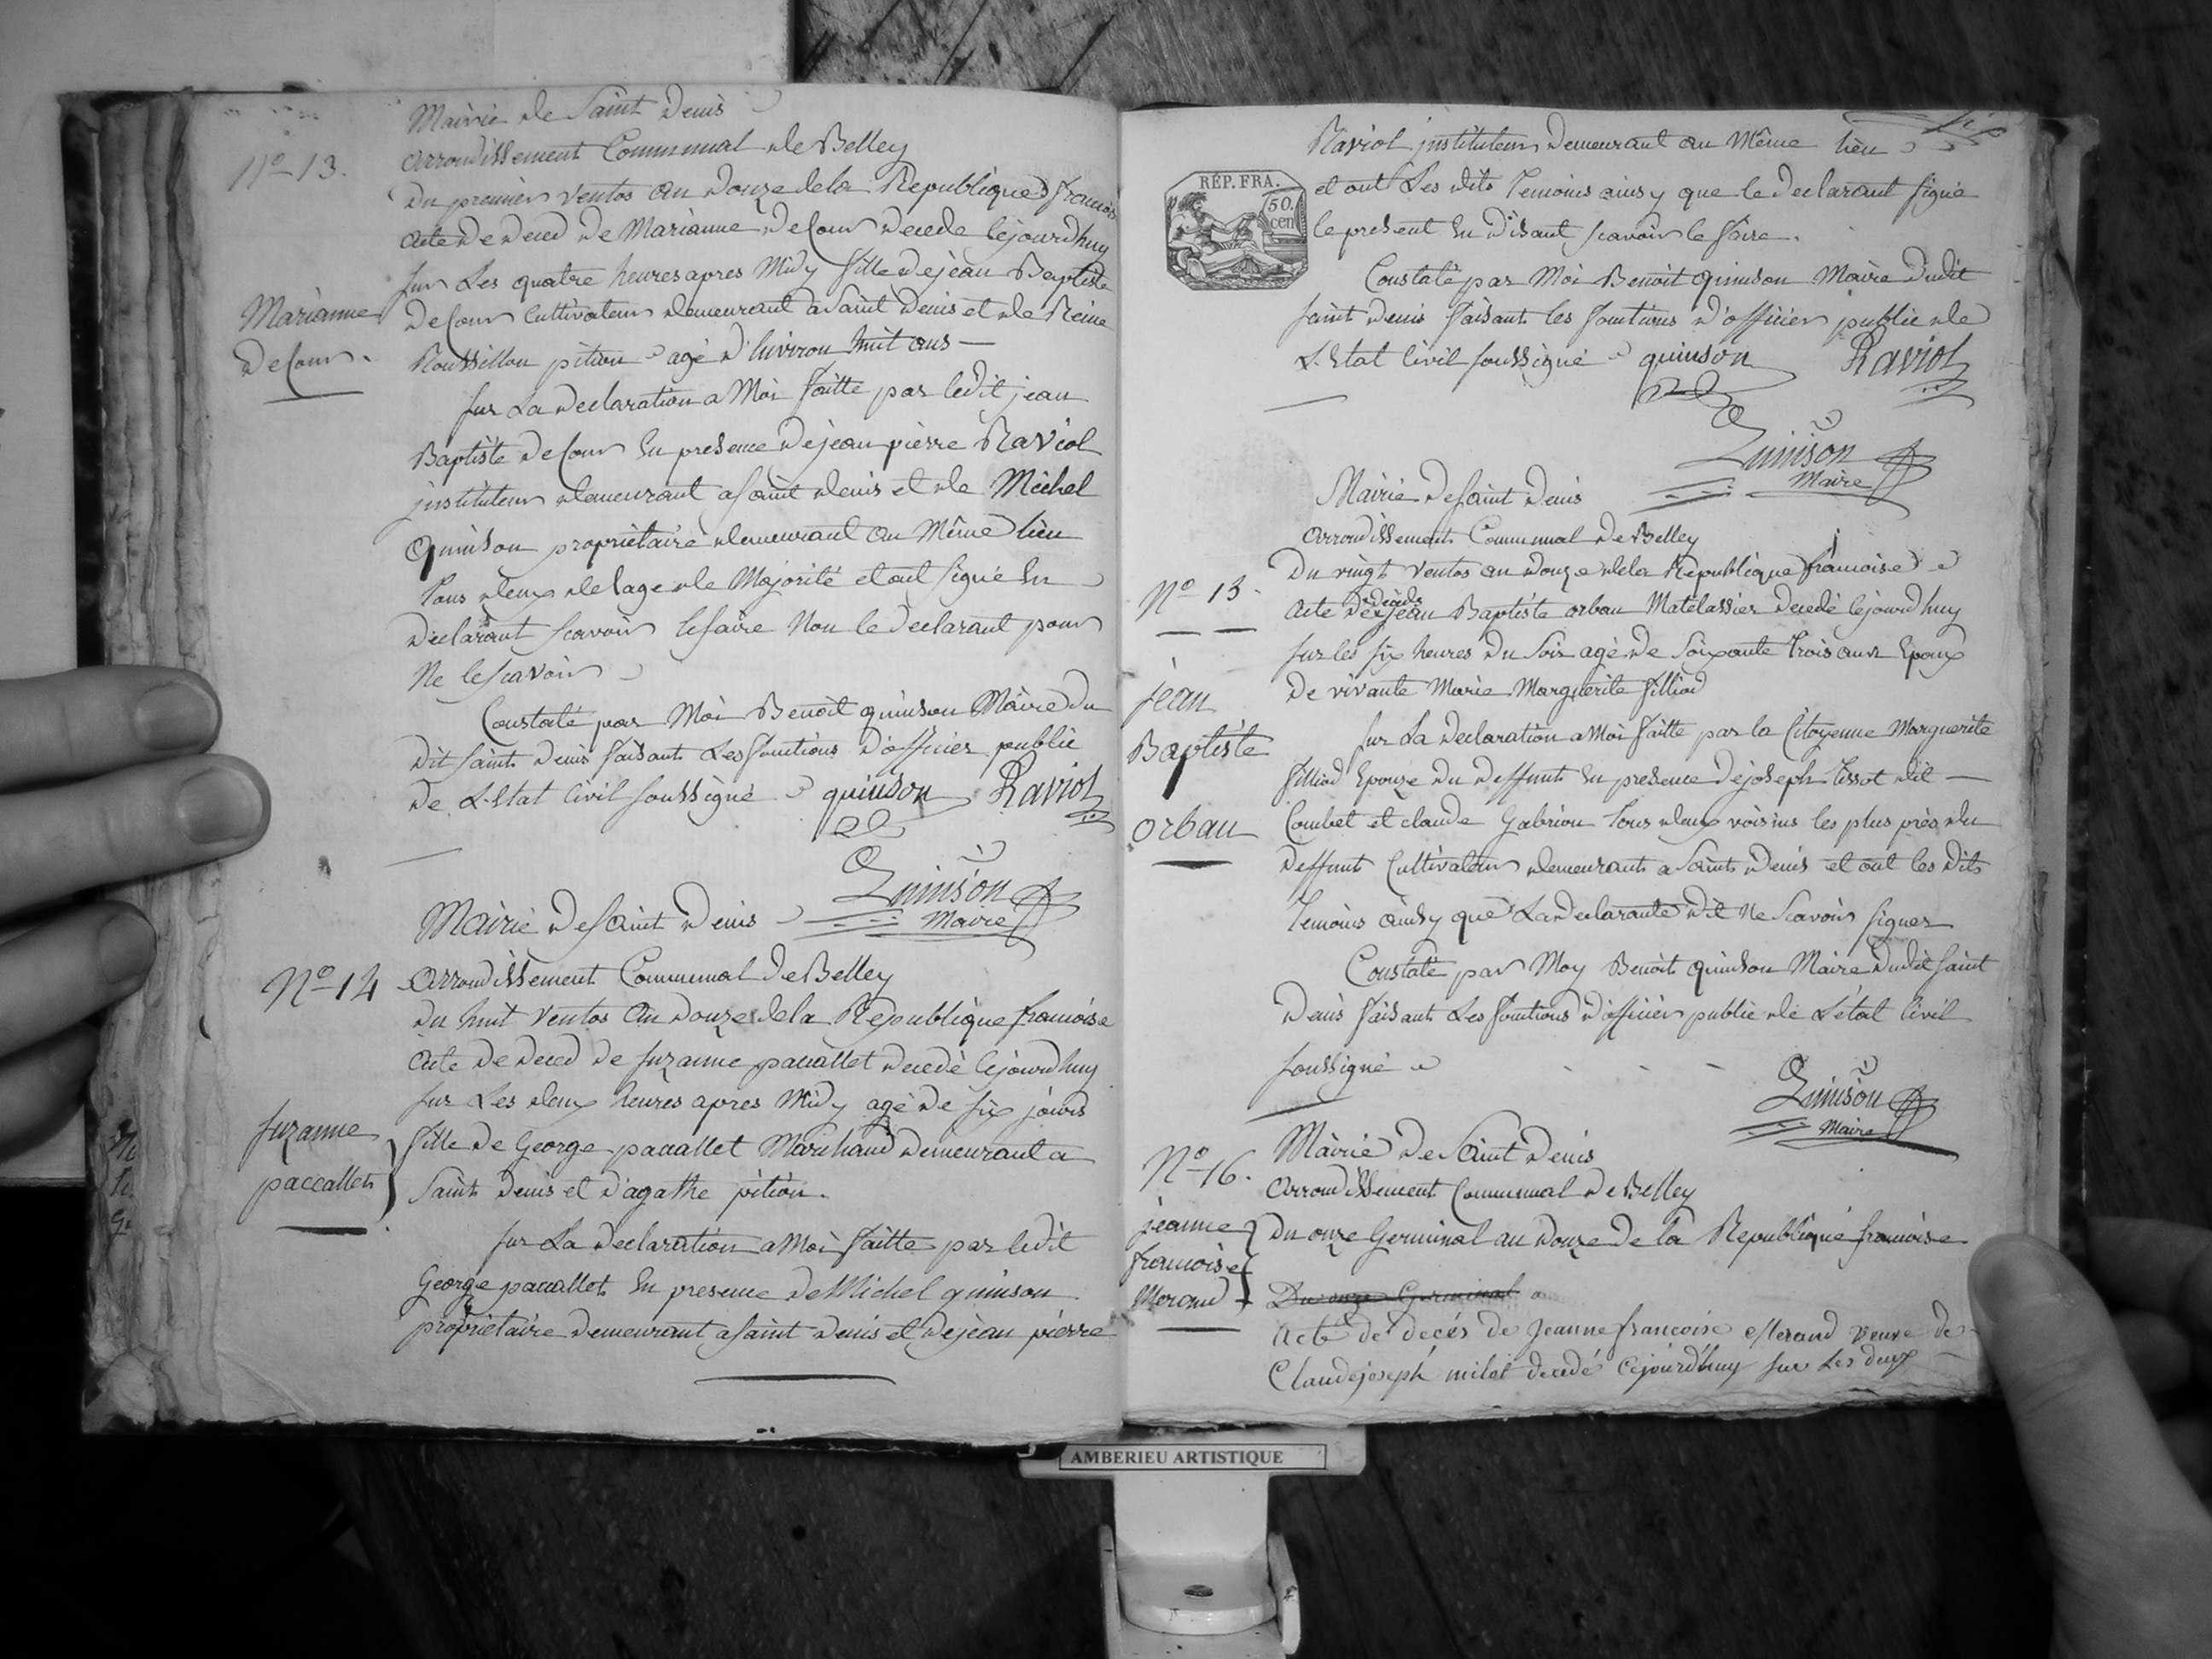 Mairie de Saint Denis
No 13.
arrondissement Communal de Belley
Du premier ventos an Douze de la Republique francoise
acte De deced De Marianne De Cour Decede cejourdhuy
sur Les quatre heures apres Midy fille De jean Baptiste
Marianne De Cour.
De Cour Cultivateur demeurant a Saint Denis et de Reine
Roussillon pition agé d'Environ huit ans
sur La declaration a Moi faitte par ledit jean
Baptiste De Cour En presence de jean pierre Raviol
instituteur demeurant a Saint denis et de Michel
Quinson proprietaire demeurant au Même lieu
tous deux de l'age de Majorité et ont signé En
declarant scavoir le faire Non le declarant pour
Ne le scavoir
Constaté par Moi Benoit quinson Maire du
dit saint Denis faisant Les fonctions d'officier public
De L'Etat Civil soussigné quinson Raviol
Quinson
Maire
Mairie De Saint Denis
No 14
arrondissement Communal De Belley
du huit Ventos an douze de la Republique francoise
acte De deced de suzanne paccallet decedé cejourdhuy
sur Les deux heures apres Midy agé De six jours
suzanne paccallet
fille De George paccallet Marchand Demeurant a
Saint Denis et D'agathe pition.
sur La declaration a Moi faitte par ledit
George paccallet En presence De Michel quinson
proprietaire Demeurant a saint Denis et De jean pierre
Raviol instituteur Demeurant au Même lieu
RÉP. FRA.
50. cen
et ont Les dits temoins ainsy que le declarant signé
le present En disant scavoir le faire.
Constaté par Moi Benoit quinson Maire dudit
saint Denis faisant les fonctions d'officier public de
L'Etat Civil soussigné quinson Raviol
Quinson
Maire
Mairie De Saint Denis
arrondissement Communal De Belley
No 13.
Du vingt ventos an douze de la Republique francoise
acte De deceds jean Baptiste orban Matelassier Decedé cejourdhuy
sur les six heures Du Soir agé De soixante trois ans Epoux
jean Baptiste orban
De vivante Marie Marguerite filliod
sur La declaration a Moi faitte par la Citoyenne Marguerite
filliod Epouze du deffunt En presence De joseph tissot dit
Combet et claude Gabrion tous deux voisins les plus près du
deffunt Cultivateur demeurants a Saint Denis et ont les dits
temoins ainsy que La declarante dit Ne Scavoir signer
Constaté par Moy Benoit quinson Maire dudit saint
Denis faisant Les fonctions d'officier public de L'état Civil
soussigné
Quinson
Maire
Mairie De Saint Denis
No 16.
arrondissement Communal De Belley
jeanne francoise Merand
Du onze Germinal an Douze De la Republique francoise
Du onze Germinal a
Acte de decés de Jeanne francoise Merand veuve de
Claude joseph milet decedé cejourd'huy sur les deux
AMBERIEU ARTISTIQUE